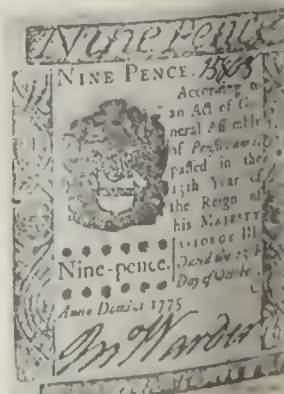 Nine Pence
NINE PENCE. 15803
According to
an Act of G
neral Assembly
of
passed in the
15th Year of
the Reign of
his MAJESTY
GEORGE III
Dated the 25th
Day of October
Nine-pence.
Anno Domini 1775
Warder